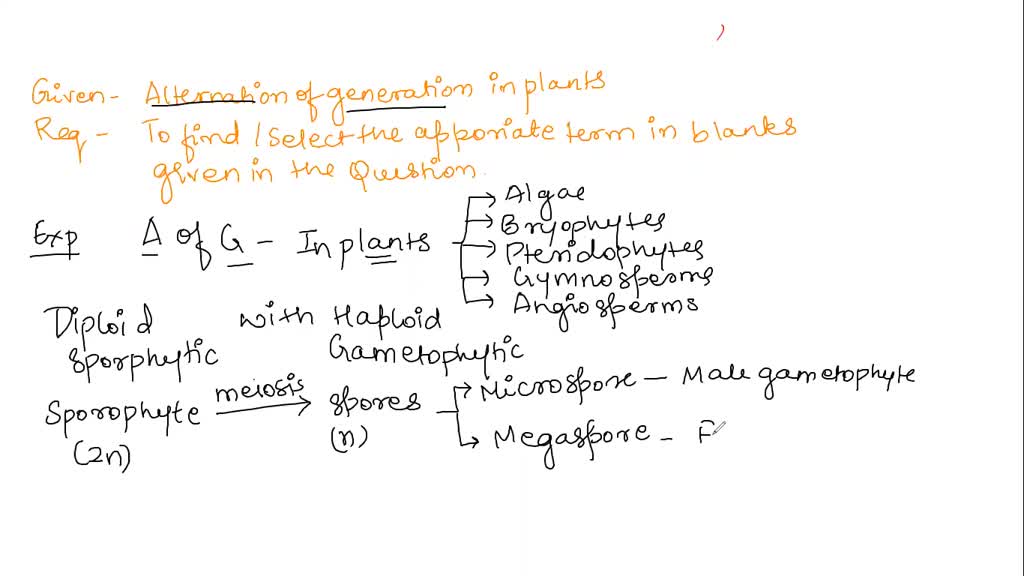 Given- Alternation of generation in plants
Req - To find / select the apponiate term in blanks
given in the Question.
Exp A of G - In plants
Algae
Bryophytes
Pteridophytes
Gymnosperms
Angiosperms
Diploid with Haploid
Sporphytic Gametophytic
Sporophyte meiosis spores
(2n) (n)
Microspore - Male gametophyte
Megaspore - F